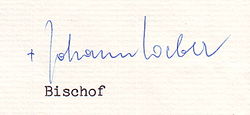 + Johann Weber
Bischof